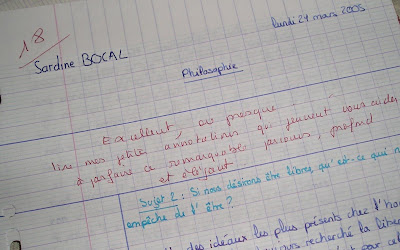 18
Sardine BOCAL
lundi 24 mars 2005
Philosophie
Excellent ou presque
lire mes petites annotations qui peuvent vous aider
à parfaire ce remarquable parcours, profond
et élégant
Sujet 2 : Si nous désirons être libres, qu'est-ce qui n
empêche de l'être ?
des idéaux les plus présents chez l'ho
recherché la liber